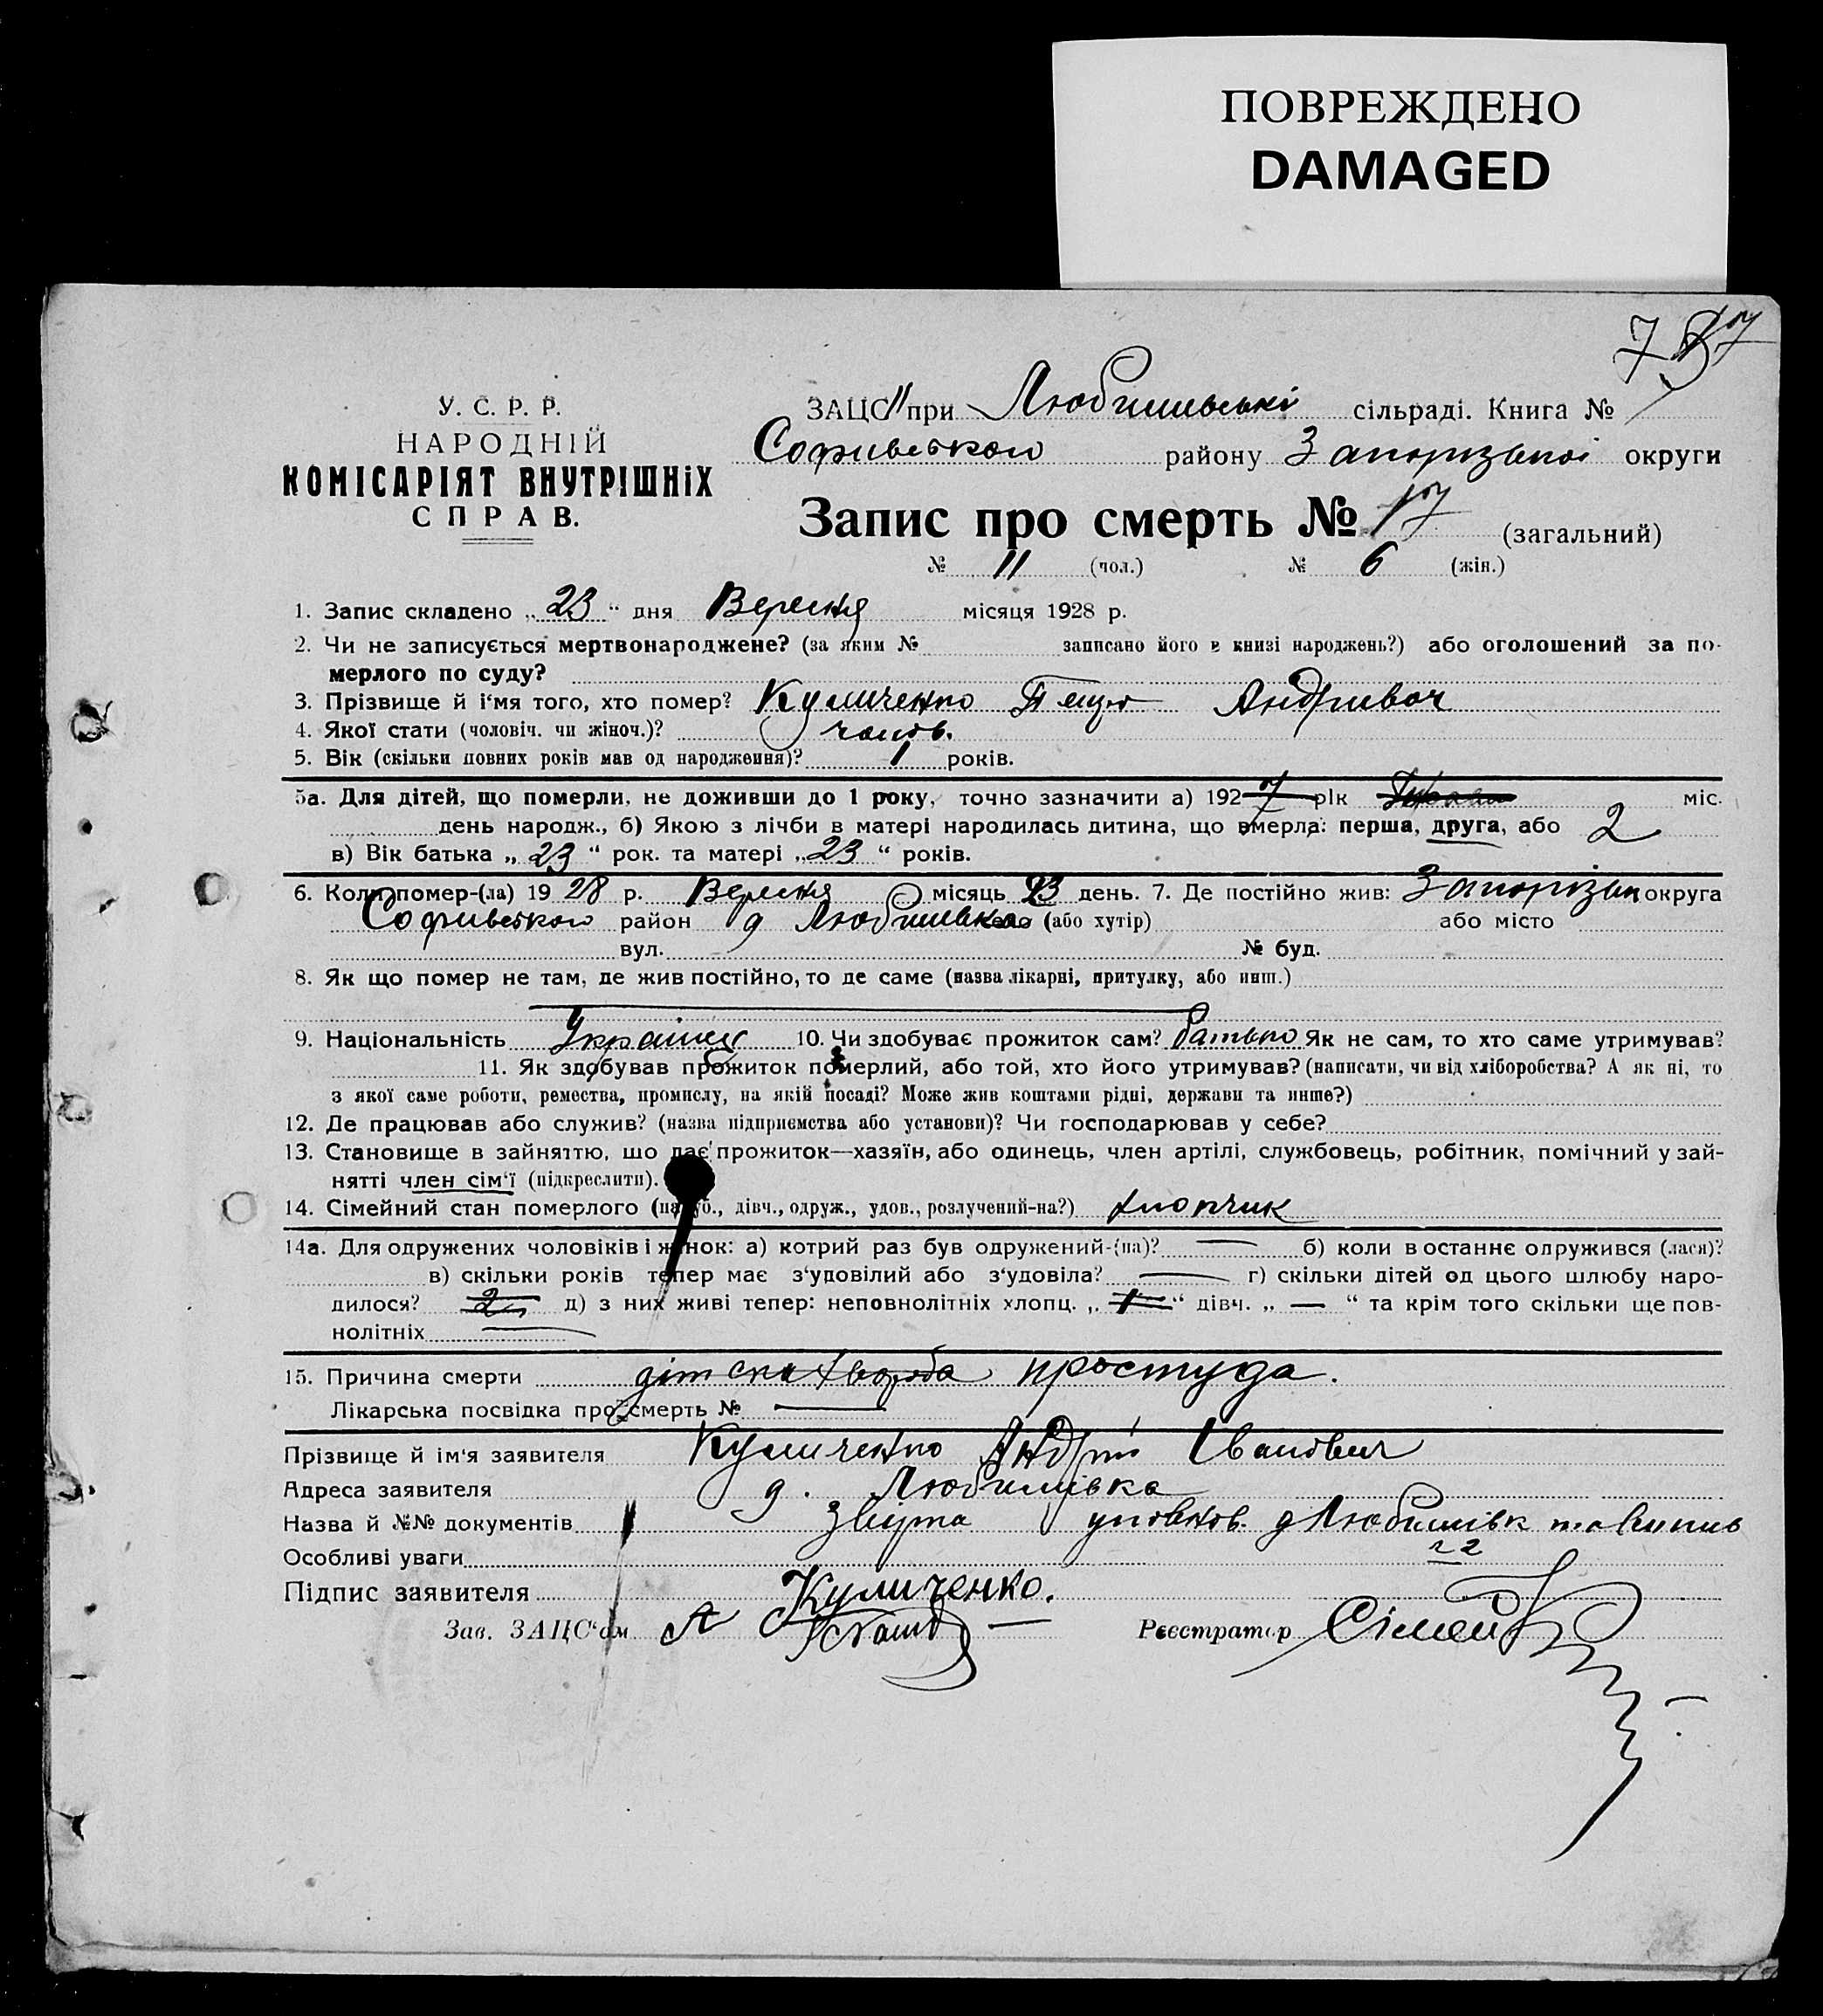 ПОВРЕЖДЕНО
DAMAGED
У. С. Р. Р.
НАРОДНІЙ
КОМІСАРІЯТ ВНУТРІШНІХ
СПРАВ.
ЗАЦС при Любимівські сільраді. Книга №
Софиївського району Запорізької округи
Запис про смерть № 17 (загальний)
№ 11 (чол.) № 6 (жін.)
1. Запис складено „ 23 “ дня Вересня місяця 1928 р.
2. Чи не записується мертвонароджене? (за яким № записано його в книзі народжень?) або оголошений за по-
мерлого по суду?
3. Прізвище й і'мя того, хто помер? Куличенко Андриєвич
4. Якої стати (чоловіч. чи жіноч.)? чолов.
5. Вік (скільки повних років мав од народження)? 1 років.
5а. Для дітей, що померли, не доживши до 1 року, точно зазначити а) 1927 рік міс.
день народж., б) Якою з лічби в матері народилась дитина, що вмерла: перша, друга, або 2
в) Вік батька „ 23 “ рок. та матері „ 23 “ років.
6. Коли помер-(ла) 1928 р. Вересня місяць 23 день. 7. Де постійно жив: Запорізьк округа
Софиївського район д Любимівка село (або хутір) або місто
вул. № буд.
8. Як що помер не там, де жив постійно, то де саме (назва лікарні, притулку, або инш.)
9. Національність Українец 10. Чи здобуває прожиток сам? батько Як не сам, то хто саме утримував?
11. Як здобував прожиток померлий, або той, хто його утримував? (написати, чи від хліборобства? А як ні, то
з якої саме роботи, ремества, промислу, на якій посаді? Може жив коштами рідні, держави та инше?)
12. Де працював або служив? (назва підприємства або установи)? Чи господарював у себе?
13. Становище в зайняттю, що дає прожиток—хазяїн, або одинець, член артілі, службовець, робітник, помічний у зай-
нятті член сім'ї (підкреслити).
14. Сімейний стан померлого (паруб., дівч., одруж., удов., розлучений-на?) хлопчик
14а. Для одружених чоловіків і жінок: а) котрий раз був одружений-(на)? — б) коли в останнє одружився (лася)?
в) скільки років тепер має з'удовілий або з'удовіла? — г) скільки дітей од цього шлюбу наро-
дилося? 2 д) з них живі тепер: неповнолітніх хлопц. „ 1 “ дівч. „ — “ та крім того скільки ще пов-
нолітніх —
15. Причина смерти дітска хвороба простуда.
Лікарська посвідка про смерть № —
Прізвище й ім'я заявителя Куличенко Андрій Іванович
Адреса заявителя д. Любимівка
Назва й №№ документів уповнов. д Любимівк
Особливі уваги
Підпис заявителя Куличенко.
Зав. ЗАЦС'ом
Реєстратор